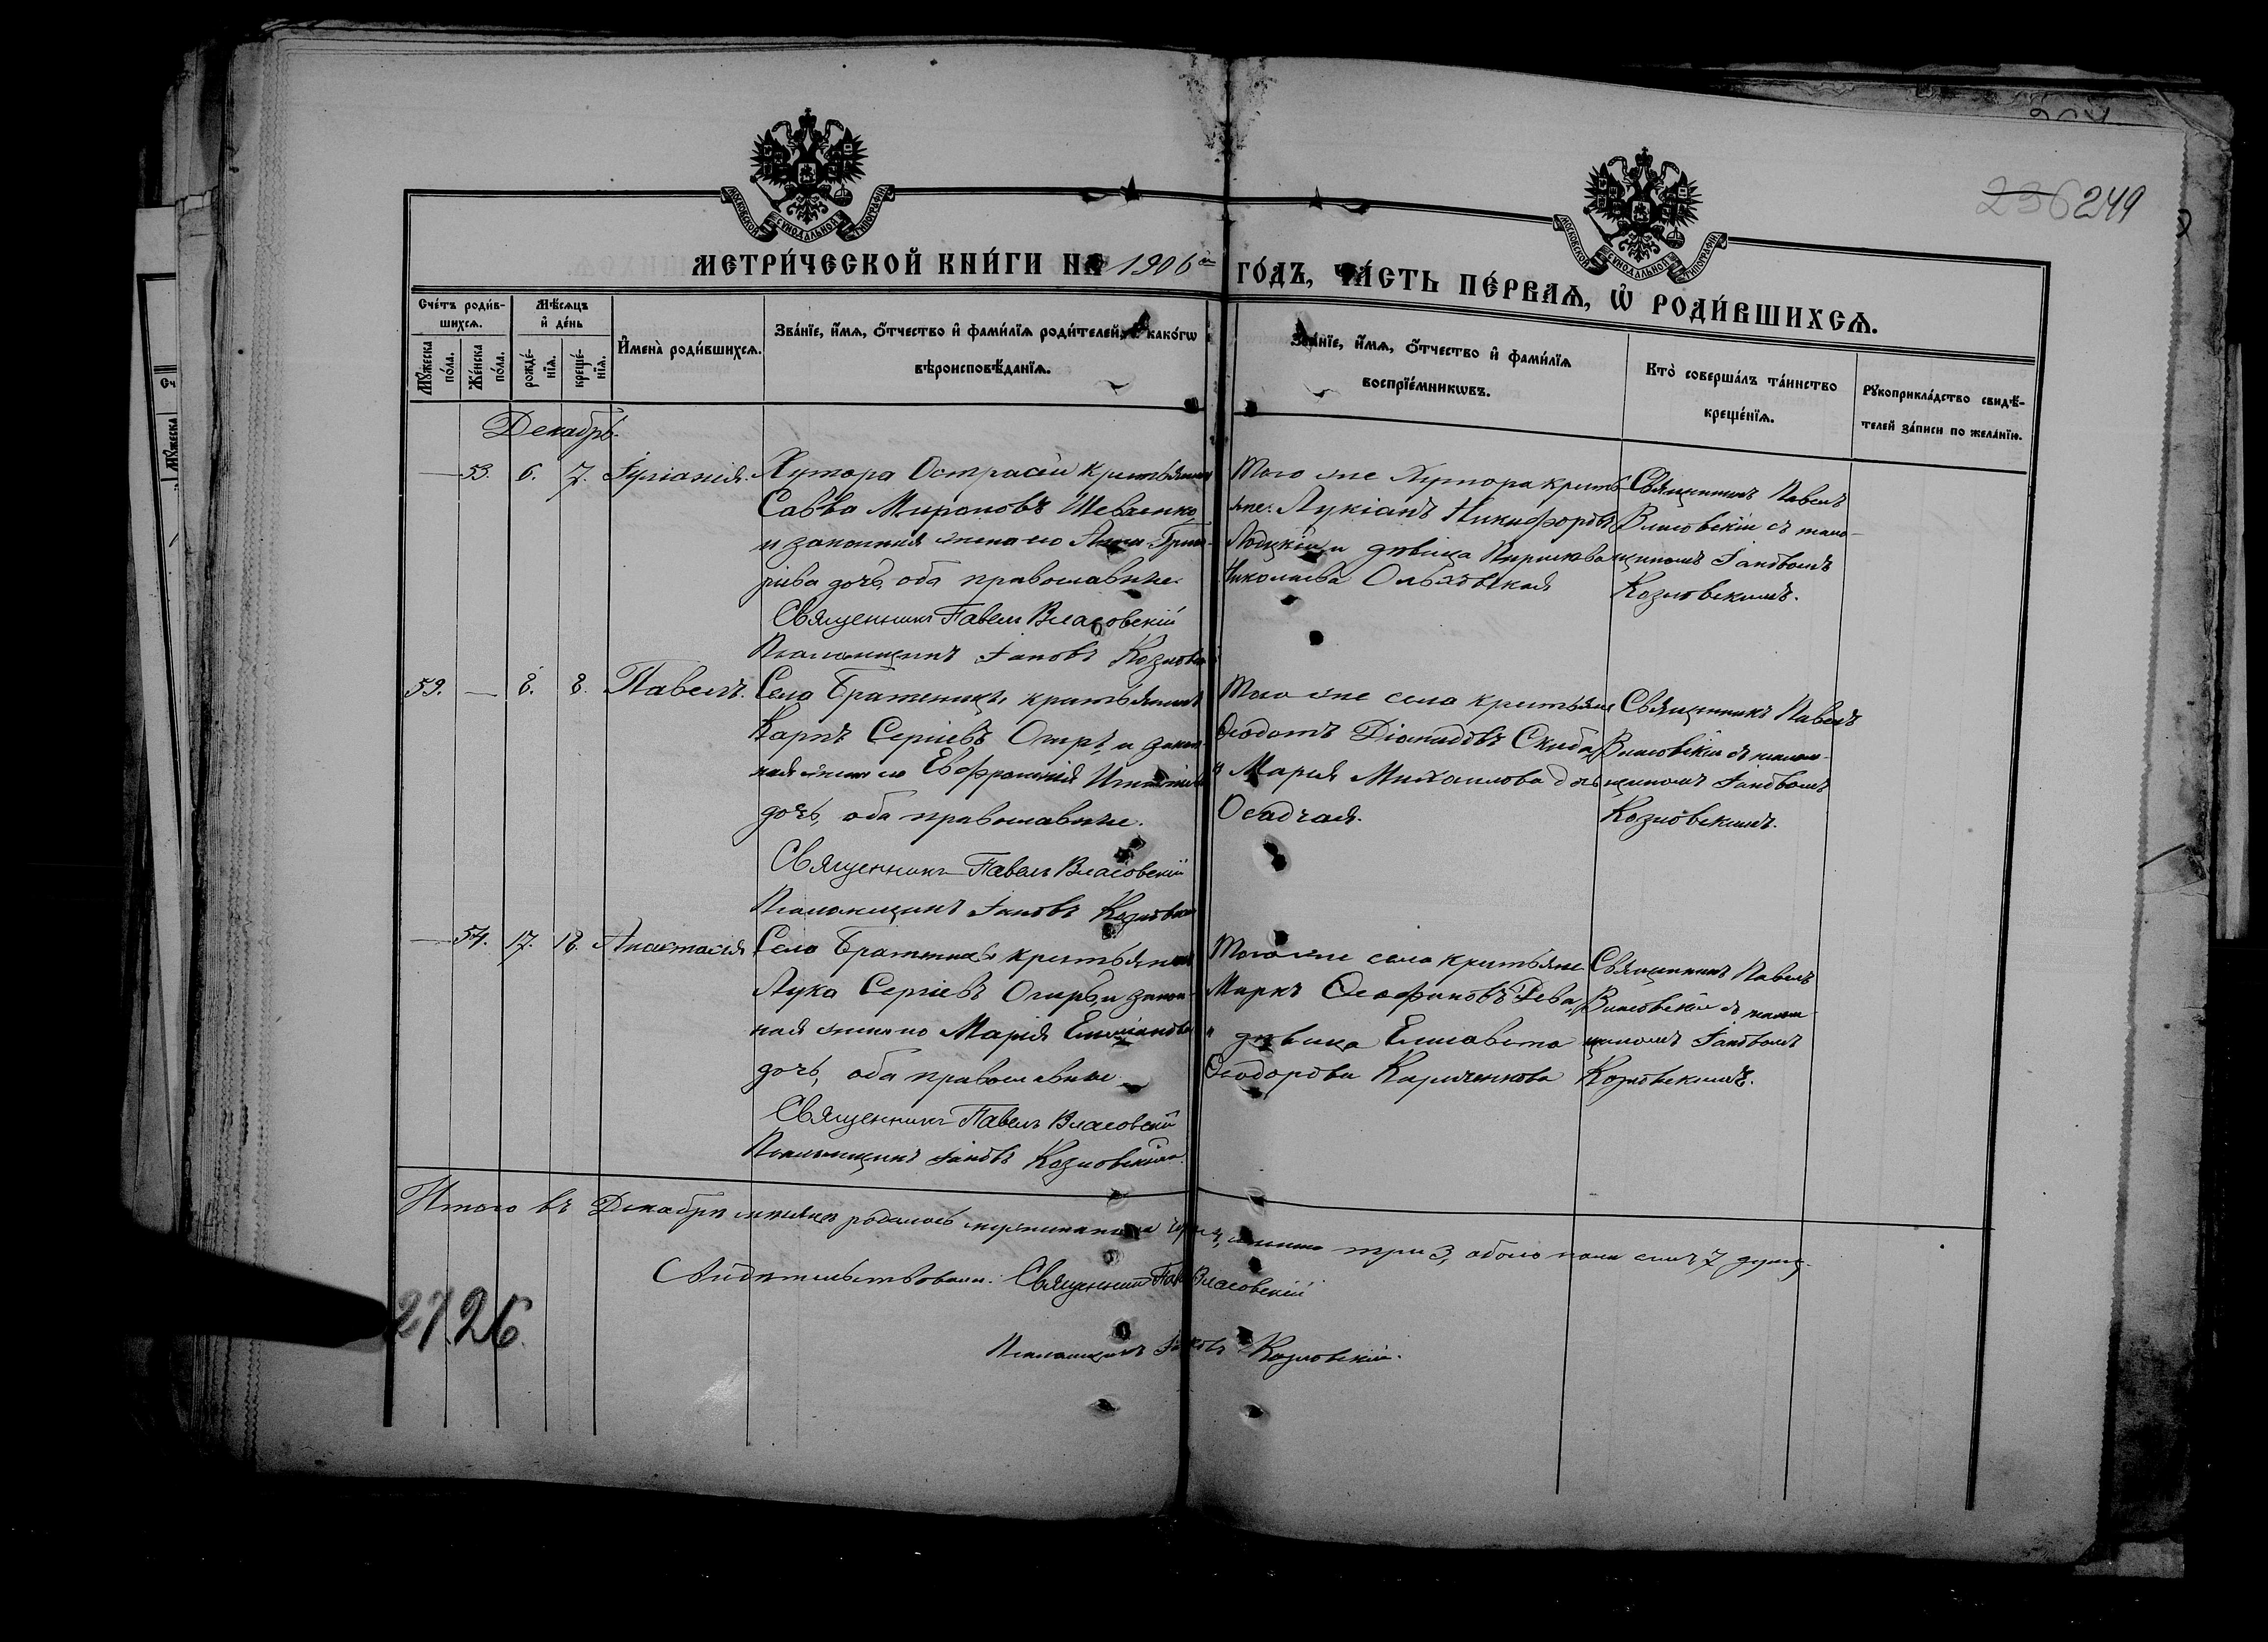 249
236
МОСКОВСКОЙ СѴНОДАЛЬНОЙ ТИПОГРАФІИ
МОСКОВСКОЙ СѴНОДАЛЬНОЙ ТИПОГРАФІИ
МЕТРИ́ЧЕСКОЙ КНИ́ГИ НА 1906й ГО́ДЪ, ЧА́СТЬ ПЕ́РВАѦ, Ѡ҆ РОДИ́ВШИХСѦ.
Сче́тъ роди́в-
шихсѧ.
Мѣ́сѧцъ
и҆ де́нь
Мꙋ́жеска
по́ла.
Же́нска
по́ла.
рожде́-
нїѧ.
креще́-
нїѧ.
И҆мена̀ роди́вшихсѧ.
Зва́нїе, и҆́мѧ, ѻ҆́тчество и҆ фами́лїѧ роди́телей, и҆ како́гѡ
вѣроисповѣ́данїѧ.
Зва́нїе, и҆́мѧ, ѻ҆́тчество и҆ фами́лїѧ
воспрїе́мникѡвъ.
Кто̀ соверша́лъ та́инство
креще́нїѧ.
Рꙋкоприкла́дство свидѣ́-
телей за́писи по жела́нїю.
Декабрь.
— 53. 6. 7. Іуліанія.
Хутора
Савва Мироновъ Шевченко
и законная жена его Анна Григо-
ріева дочь, оба православные.
Священникъ Павелъ Власовскій
Псаломщикъ Іаковъ Козловскій
Того же Хутора крестья-
не: Лукіанъ Никифоровъ
и дѣвица
Николаева
Священникъ Павелъ
Власовскій съ псалом-
щикомъ Іаковомъ
Козловскимъ.
59. — 8. 8. Павелъ.
Села Братеницъ крестьянинъ
Карпъ Сергіевъ Огирь и закон-
ная жена его Евфросинія
дочь, оба православные.
Священникъ Павелъ Власовскій
Псаломщикъ Іаковъ Козловскій
Того же села крестьяне
Ѳеодотъ Діомидовъ Скиба
и Марія Михаилова дочь
Осадчая.
Священникъ Павелъ
Власовскій съ псалом-
щикомъ Іаковомъ
Козловскимъ.
— 54. 17. 18. Анастасія
Села Братеницъ крестьянинъ
Лука Сергіевъ Огирь и закон-
ная жена его Марія
дочь, оба православные.
Священникъ Павелъ Власовскій
Псаломщикъ Іаковъ Козловскій.
Того же села крестьяне
Маркъ Ѳеофановъ Рева,
и дѣвица Елисавета
Ѳеодорова
Священникъ Павелъ
Власовскій съ псалом-
щикомъ Іаковомъ
Козловскимъ.
Итого въ Декабрѣ мѣсяцѣ родилось мужеска пола 4, женска три 3, обоего пола семь 7 душъ.
Свидѣтельствовали: Священникъ Павелъ Власовскій
Псаломщикъ Іаковъ Козловскій.
27.26.